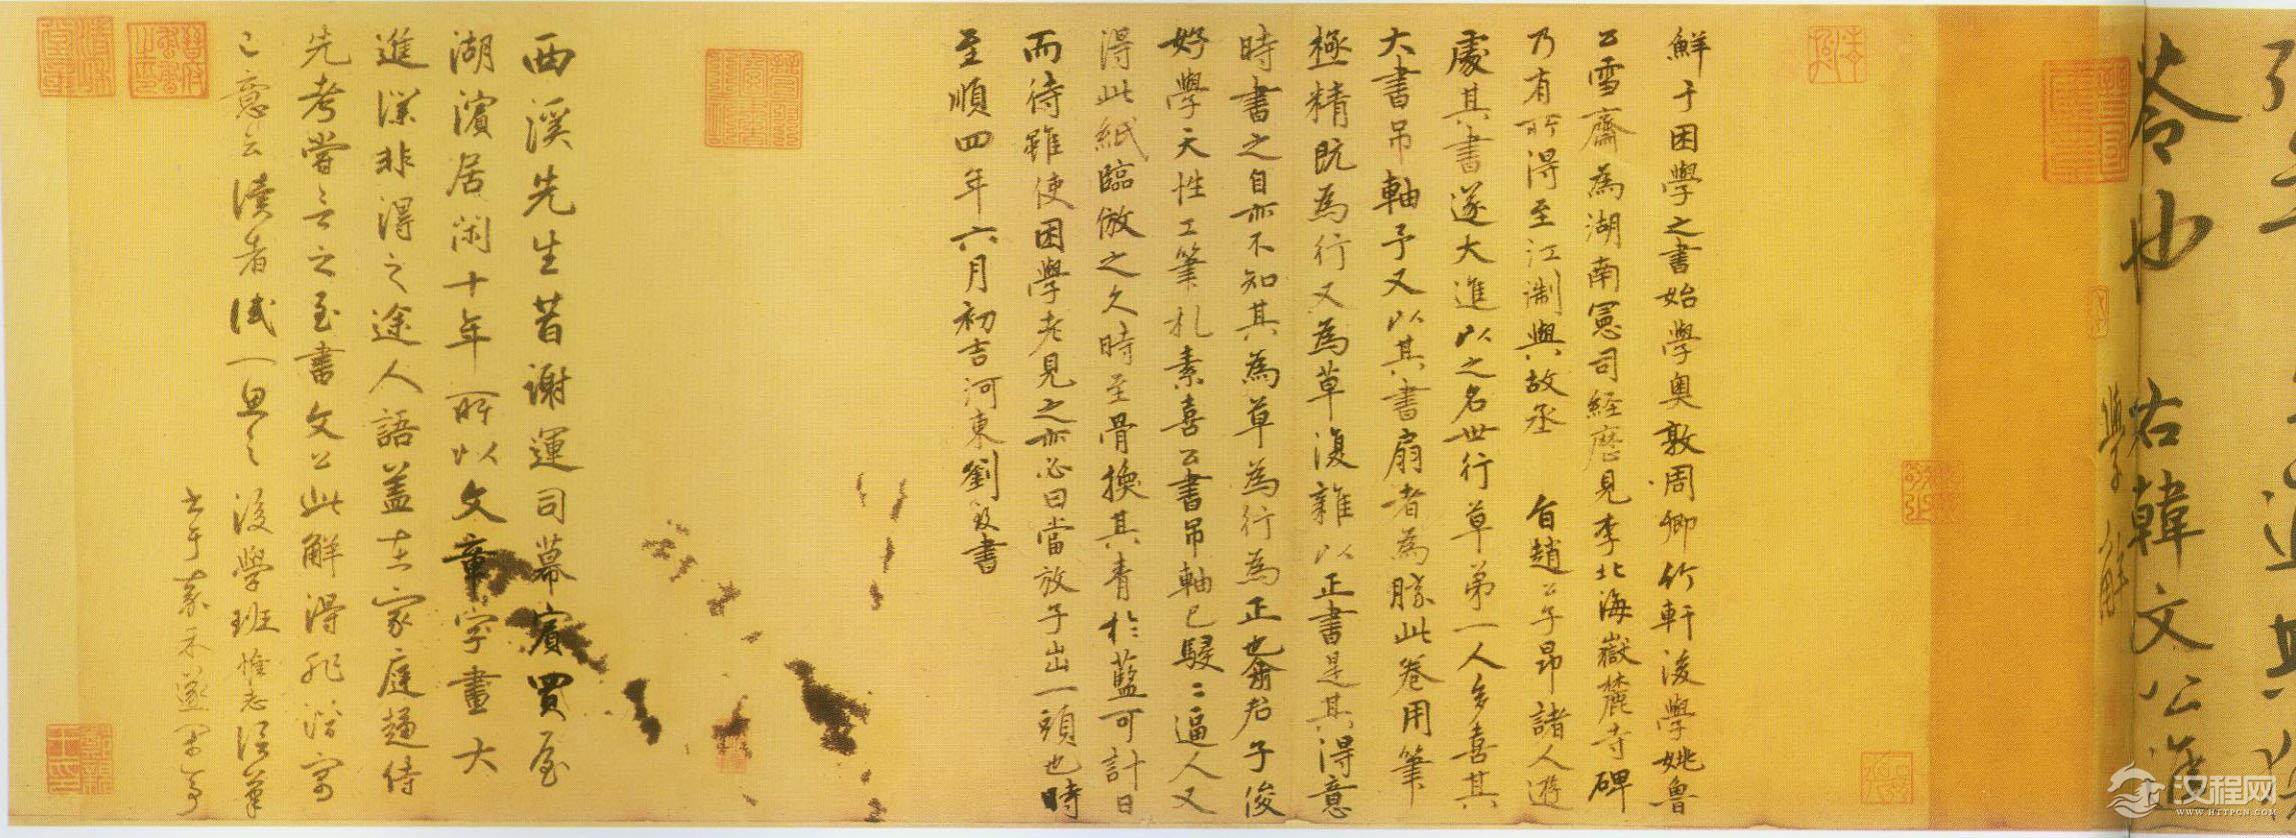 苓也　右韓文公進
學解
鮮于困學之書始學奧敦周卿竹軒後學姚魯
公雪齋為湖南憲司經歷見李北海嶽麓寺碑
乃有所得至江浙與故丞　旨趙公子昂諸人遊
處其書遂大進以之名世行草弟一人多喜其
大書吊軸予又以其書扇者為勝此卷用筆
極精既為行又為草復雜以正書是其得意
時書之自亦不知其為草為行為正也俞君子俊
好學天性工筆札素喜公書吊軸已駸二逼人又
得此紙臨倣之久時至骨換其青於藍可計日
而待雖使困學老見之亦必曰當放子出一頭也時
至順四年六月初吉河東劉致書
西溪先生昔謝運司幕賓買屋
湖濱居閑十年所以文章字畫大
進深非得之途人語蓋在家庭趨侍
先考嘗言之至書文公此解得非潛寓
之意云讀者試一思之　後學班惟志謹筆
汉程网
WWW.HTTPCN.COM